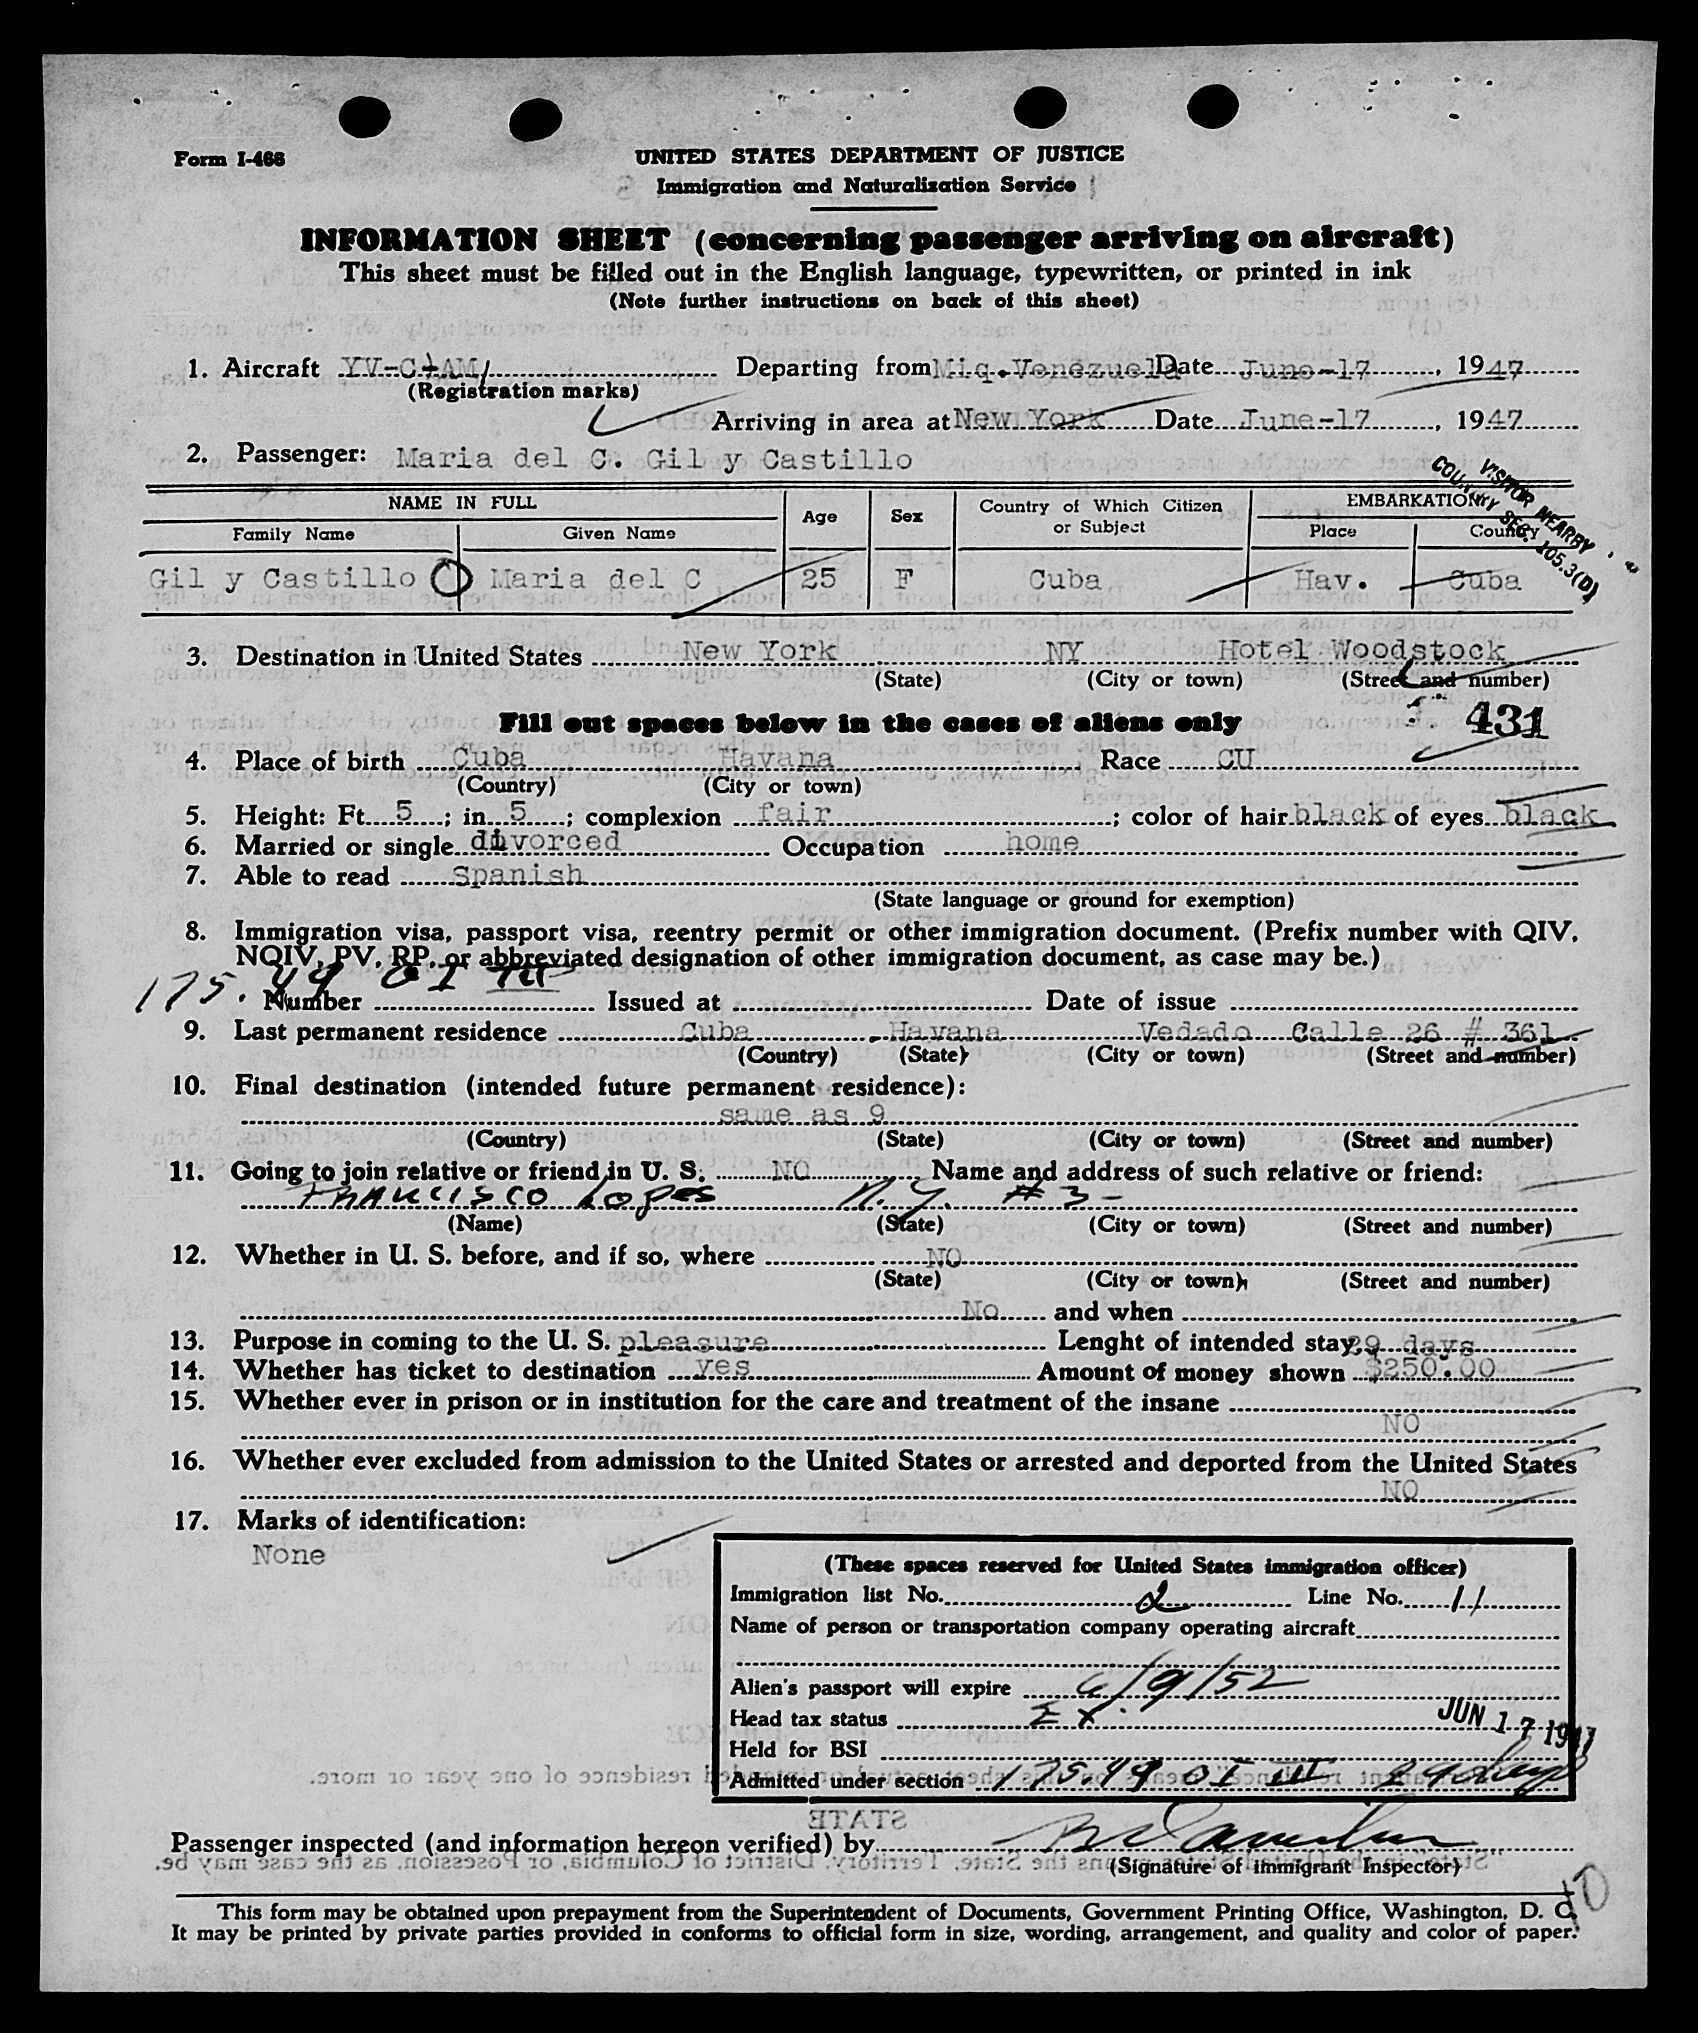 Form I-466
UNITED STATES DEPARTMENT OF JUSTICE
Immigration and Naturalization Service
INFORMATION SHEET (concerning passenger arriving on aircraft)
This sheet must be filled out in the English language, typewritten, or printed in ink
(Note further instructions on back of this sheet)
1. Aircraft YV-C-AM Departing from Miq. Venezuela Date June-17, 1947
(Registration marks)
Arriving in area at New York Date June-17, 1947
2. Passenger: Maria del C. Gil y Castillo
VISITOR NEARBY
COUNTRY SEC. 105.3(D)
NAME IN FULL Age Sex Country of Which Citizen or Subject EMBARKATION
Family Name Given Name Place County
Gil y Castillo Maria del C 25 F Cuba Hav. Cuba
3. Destination in United States New York NY Hotel Woodstock
(State) (City or town) (Street and number)
Fill out spaces below in the cases of aliens only 431
4. Place of birth Cuba Havana Race CU
(Country) (City or town)
5. Height: Ft. 5; in. 5; complexion fair; color of hair black of eyes black
6. Married or single divorced Occupation home
7. Able to read Spanish
(State language or ground for exemption)
8. Immigration visa, passport visa, reentry permit or other immigration document. (Prefix number with QIV,
NQIV, PV, RP, or abbreviated designation of other immigration document, as case may be.)
175.49 OI III
Number Issued at Date of issue
9. Last permanent residence Cuba, Havana Vedado Calle 26 # 361
(Country) (State) (City or town) (Street and number)
10. Final destination (intended future permanent residence):
same as 9
(Country) (State) (City or town) (Street and number)
11. Going to join relative or friend in U. S. NO Name and address of such relative or friend:
FRANCISCO Lopes N.Y. #3-
(Name) (State) (City or town) (Street and number)
12. Whether in U. S. before, and if so, where NO
(State) (City or town) (Street and number)
No and when
13. Purpose in coming to the U. S. pleasure Lenght of intended stay 29 days
14. Whether has ticket to destination yes Amount of money shown $250.00
15. Whether ever in prison or in institution for the care and treatment of the insane
NO
16. Whether ever excluded from admission to the United States or arrested and deported from the United States
NO
17. Marks of identification:
None
(These spaces reserved for United States immigration officer)
Immigration list No. 2 Line No. 11
Name of person or transportation company operating aircraft
Alien's passport will expire 6/9/52
Head tax status Ex.
JUN 17 1947
Held for BSI
Admitted under section 175.49 OI III 29 days
Passenger inspected (and information hereon verified) by
(Signature of immigrant Inspector)
This form may be obtained upon prepayment from the Superintendent of Documents, Government Printing Office, Washington, D. C.
It may be printed by private parties provided in conforms to official form in size, wording, arrangement, and quality and color of paper.